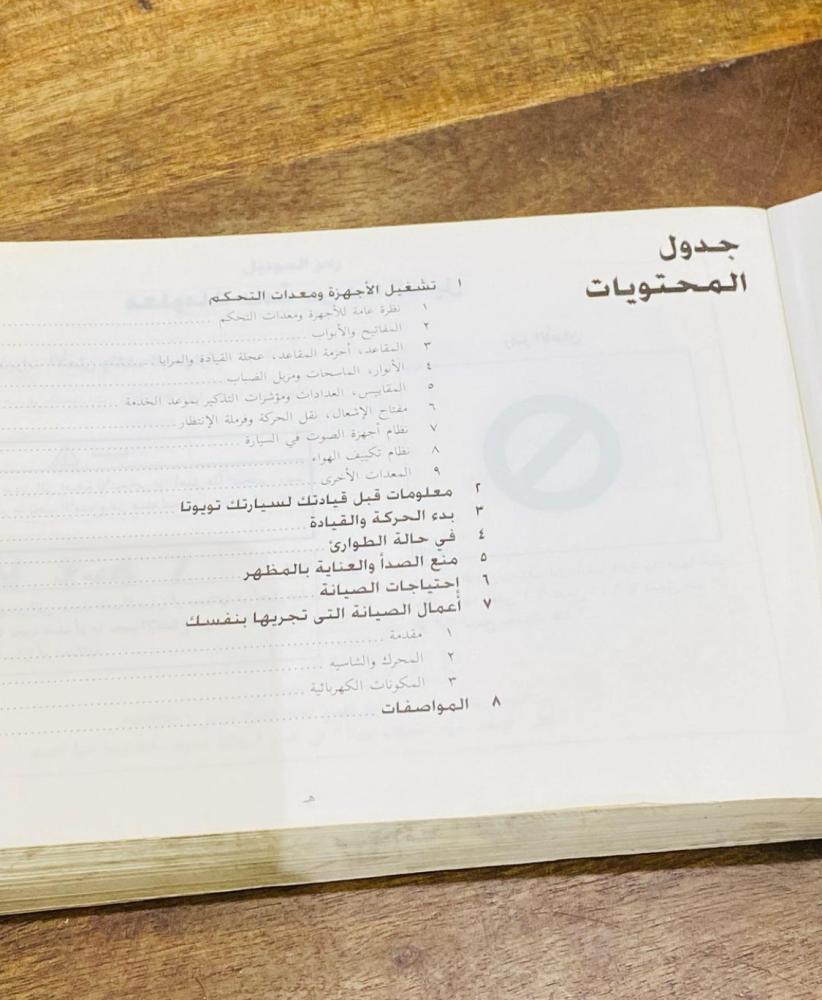 جدول
المحتويات
١ تشغيل الأجهزة ومعدات التحكم
١ نظرة عامة للأجهزة ومعدات التحكم
٢ المفاتيح والأبواب
٣ المقاعد، أحزمة المقاعد، عجلة القيادة والمرايا
٤ الأنوار، الماسحات ومزيل الضباب
٥ المقاييس، العدادات ومؤشرات التذكير بموعد الخدمة
٦ مفتاح الإشعال، نقل الحركة وفرملة الإنتظار
٧ نظام أجهزة الصوت في السيارة
٨ نظام تكييف الهواء
٩ المعدات الأخرى
٢ معلومات قبل قيادتك لسيارتك تويوتا
٣ بدء الحركة والقيادة
٤ في حالة الطوارئ
٥ منع الصدأ والعناية بالمظهر
٦ إحتياجات الصيانة
٧ أعمال الصيانة التى تجريها بنفسك
١ مقدمة
٢ المحرك والشاسيه
٣ المكونات الكهربائية
٨ المواصفات
هـ